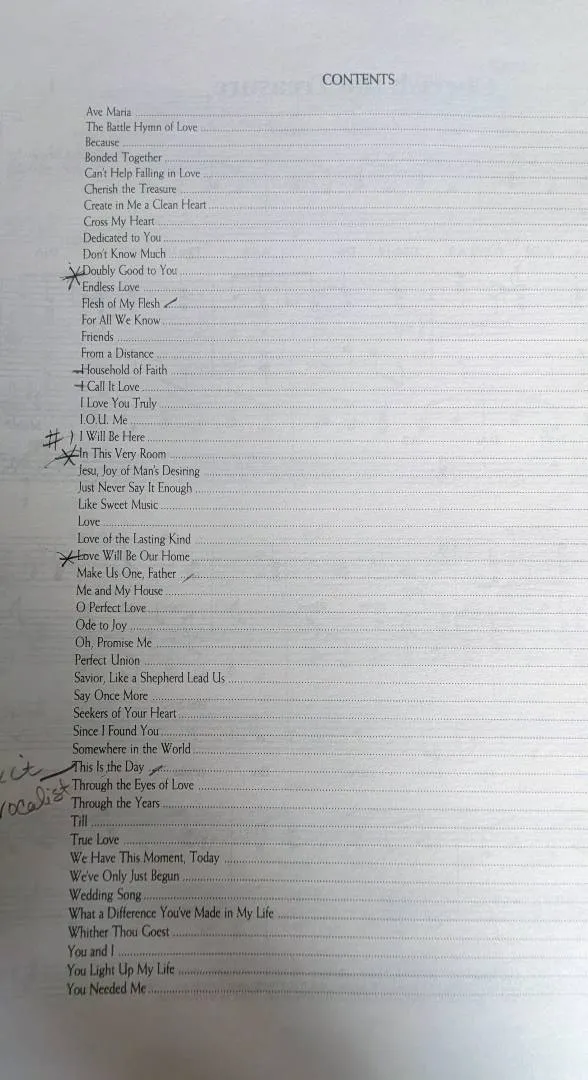 CONTENTS
Ave Maria
The Battle Hymn of Love
Because
Bonded Together
Can't Help Falling in Love
Cherish the Treasure
Create in Me a Clean Heart
Cross My Heart
Dedicated to You
Don't Know Much
Doubly Good to You
Endless Love
Flesh of My Flesh
For All We Know
Friends
From a Distance
Household of Faith
I Call It Love
I Love You Truly
I.O.U. Me
#1 I Will Be Here
In This Very Room
Jesu, Joy of Man's Desiring
Just Never Say It Enough
Like Sweet Music
Love
Love of the Lasting Kind
Love Will Be Our Home
Make Us One, Father
Me and My House
O Perfect Love
Ode to Joy
Oh, Promise Me
Perfect Union
Savior, Like a Shepherd Lead Us
Say Once More
Seekers of Your Heart
Since I Found You
Somewhere in the World
This Is the Day
vocalist
Through the Eyes of Love
Through the Years
Till
True Love
We Have This Moment, Today
We've Only Just Begun
Wedding Song
What a Difference You've Made in My Life
Whither Thou Goest
You and I
You Light Up My Life
You Needed Me